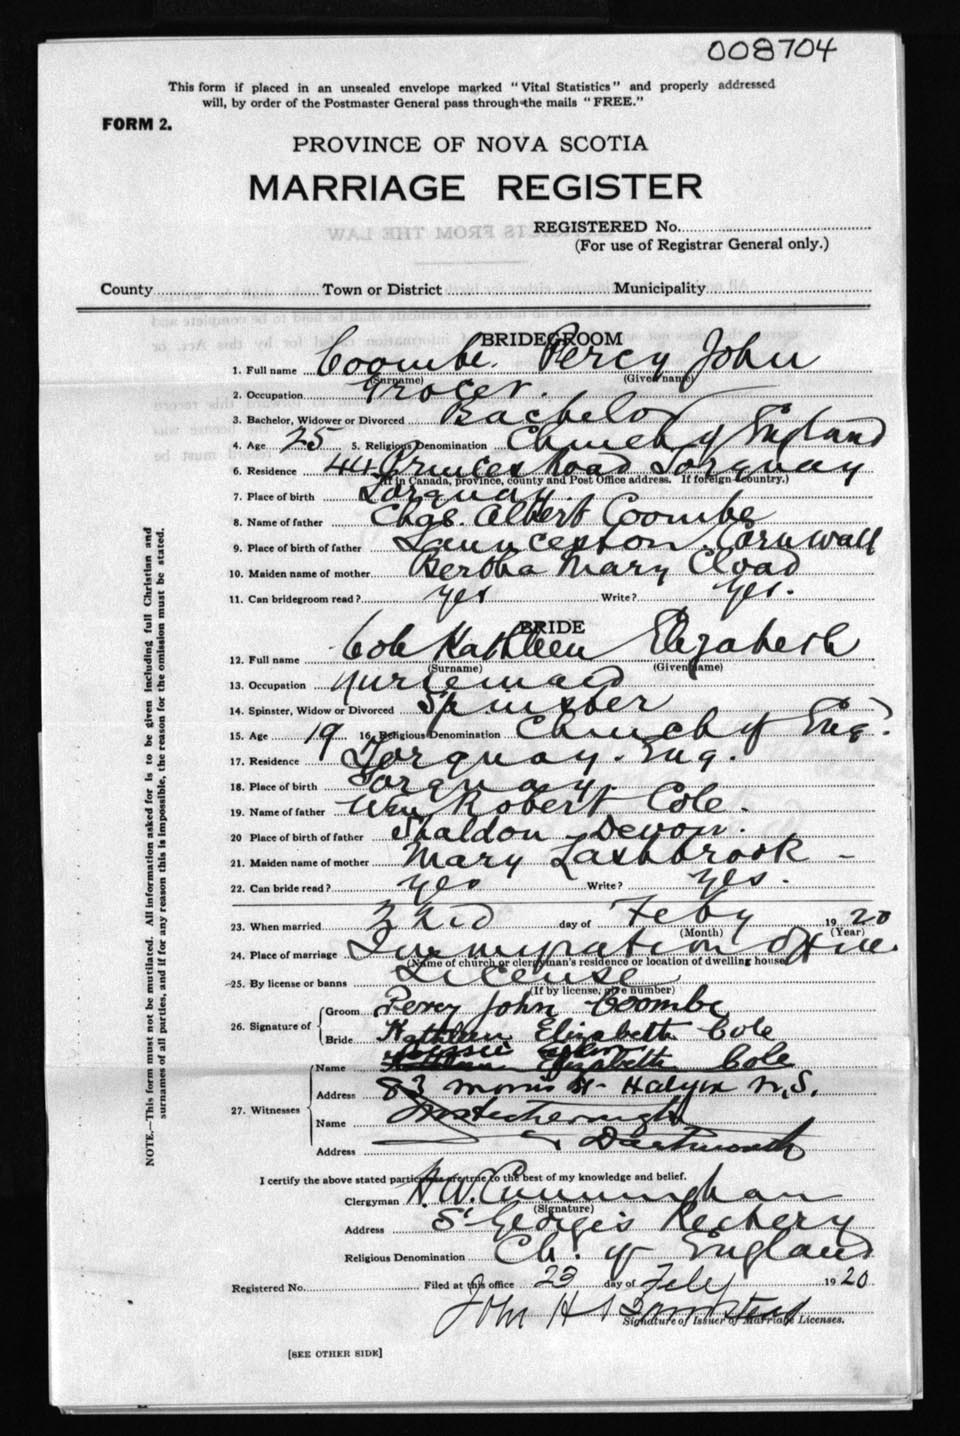 008704
This form if placed in an unsealed envelope marked "Vital Statistics" and properly addressed
will, by order of the Postmaster General pass through the mails "FREE."
FORM 2.
PROVINCE OF NOVA SCOTIA
MARRIAGE REGISTER
REGISTERED No.
(For use of Registrar General only.)
County Town or District Municipality
BRIDEGROOM
1. Full name Coombe. Percy John
(Surname) (Given name)
2. Occupation Grocer.
3. Bachelor, Widower or Divorced Bachelor
4. Age 25 5. Religious Denomination Church of England
6. Residence 44 Princes Road Torquay
(If in Canada, province, county and Post Office address. If foreign country.)
7. Place of birth Torquay.
8. Name of father Chas. Albert Coombe
9. Place of birth of father Launceston Cornwall
10. Maiden name of mother Bertha Mary Cload
11. Can bridegroom read? yes Write? yes.
BRIDE
12. Full name Cole Kathleen Elizabeth
(Surname) (Given name)
13. Occupation Nursemaid
14. Spinster, Widow or Divorced Spinster
15. Age 19 16. Religious Denomination Church of Eng.
17. Residence Torquay. Eng.
18. Place of birth Torquay.
19. Name of father Wm Robert Cole.
20 Place of birth of father Shaldon Devon.
21. Maiden name of mother Mary Lashbrook -
22. Can bride read? yes Write? yes.
23. When married 23rd day of Feby 1920
(Month) (Year)
24. Place of marriage Immigration Office.
(Name of church or clergyman's residence or location of dwelling house)
25. By license or banns License
(If by license, give number)
26. Signature of Groom Percy John Coombe
Bride Kathleen Elizabeth Cole
27. Witnesses
Name Elizabeth Cole
Address 83 Morris St- Halifax N.S.
Name
Address Dartmouth
I certify the above stated particulars are true to the best of my knowledge and belief.
Clergyman H.W. Cunningham
(Signature)
Address St George's Rectory
Religious Denomination Ch. of England
Registered No. Filed at this office 23 day of Feby 1920
John H
Signature of Issuer of Marriage Licenses.
[SEE OTHER SIDE]
NOTE.—This form must not be mutilated. All information asked for is to be given including full Christian and
surnames of all parties, and if for any reason this is impossible, the reason for the omission must be stated.